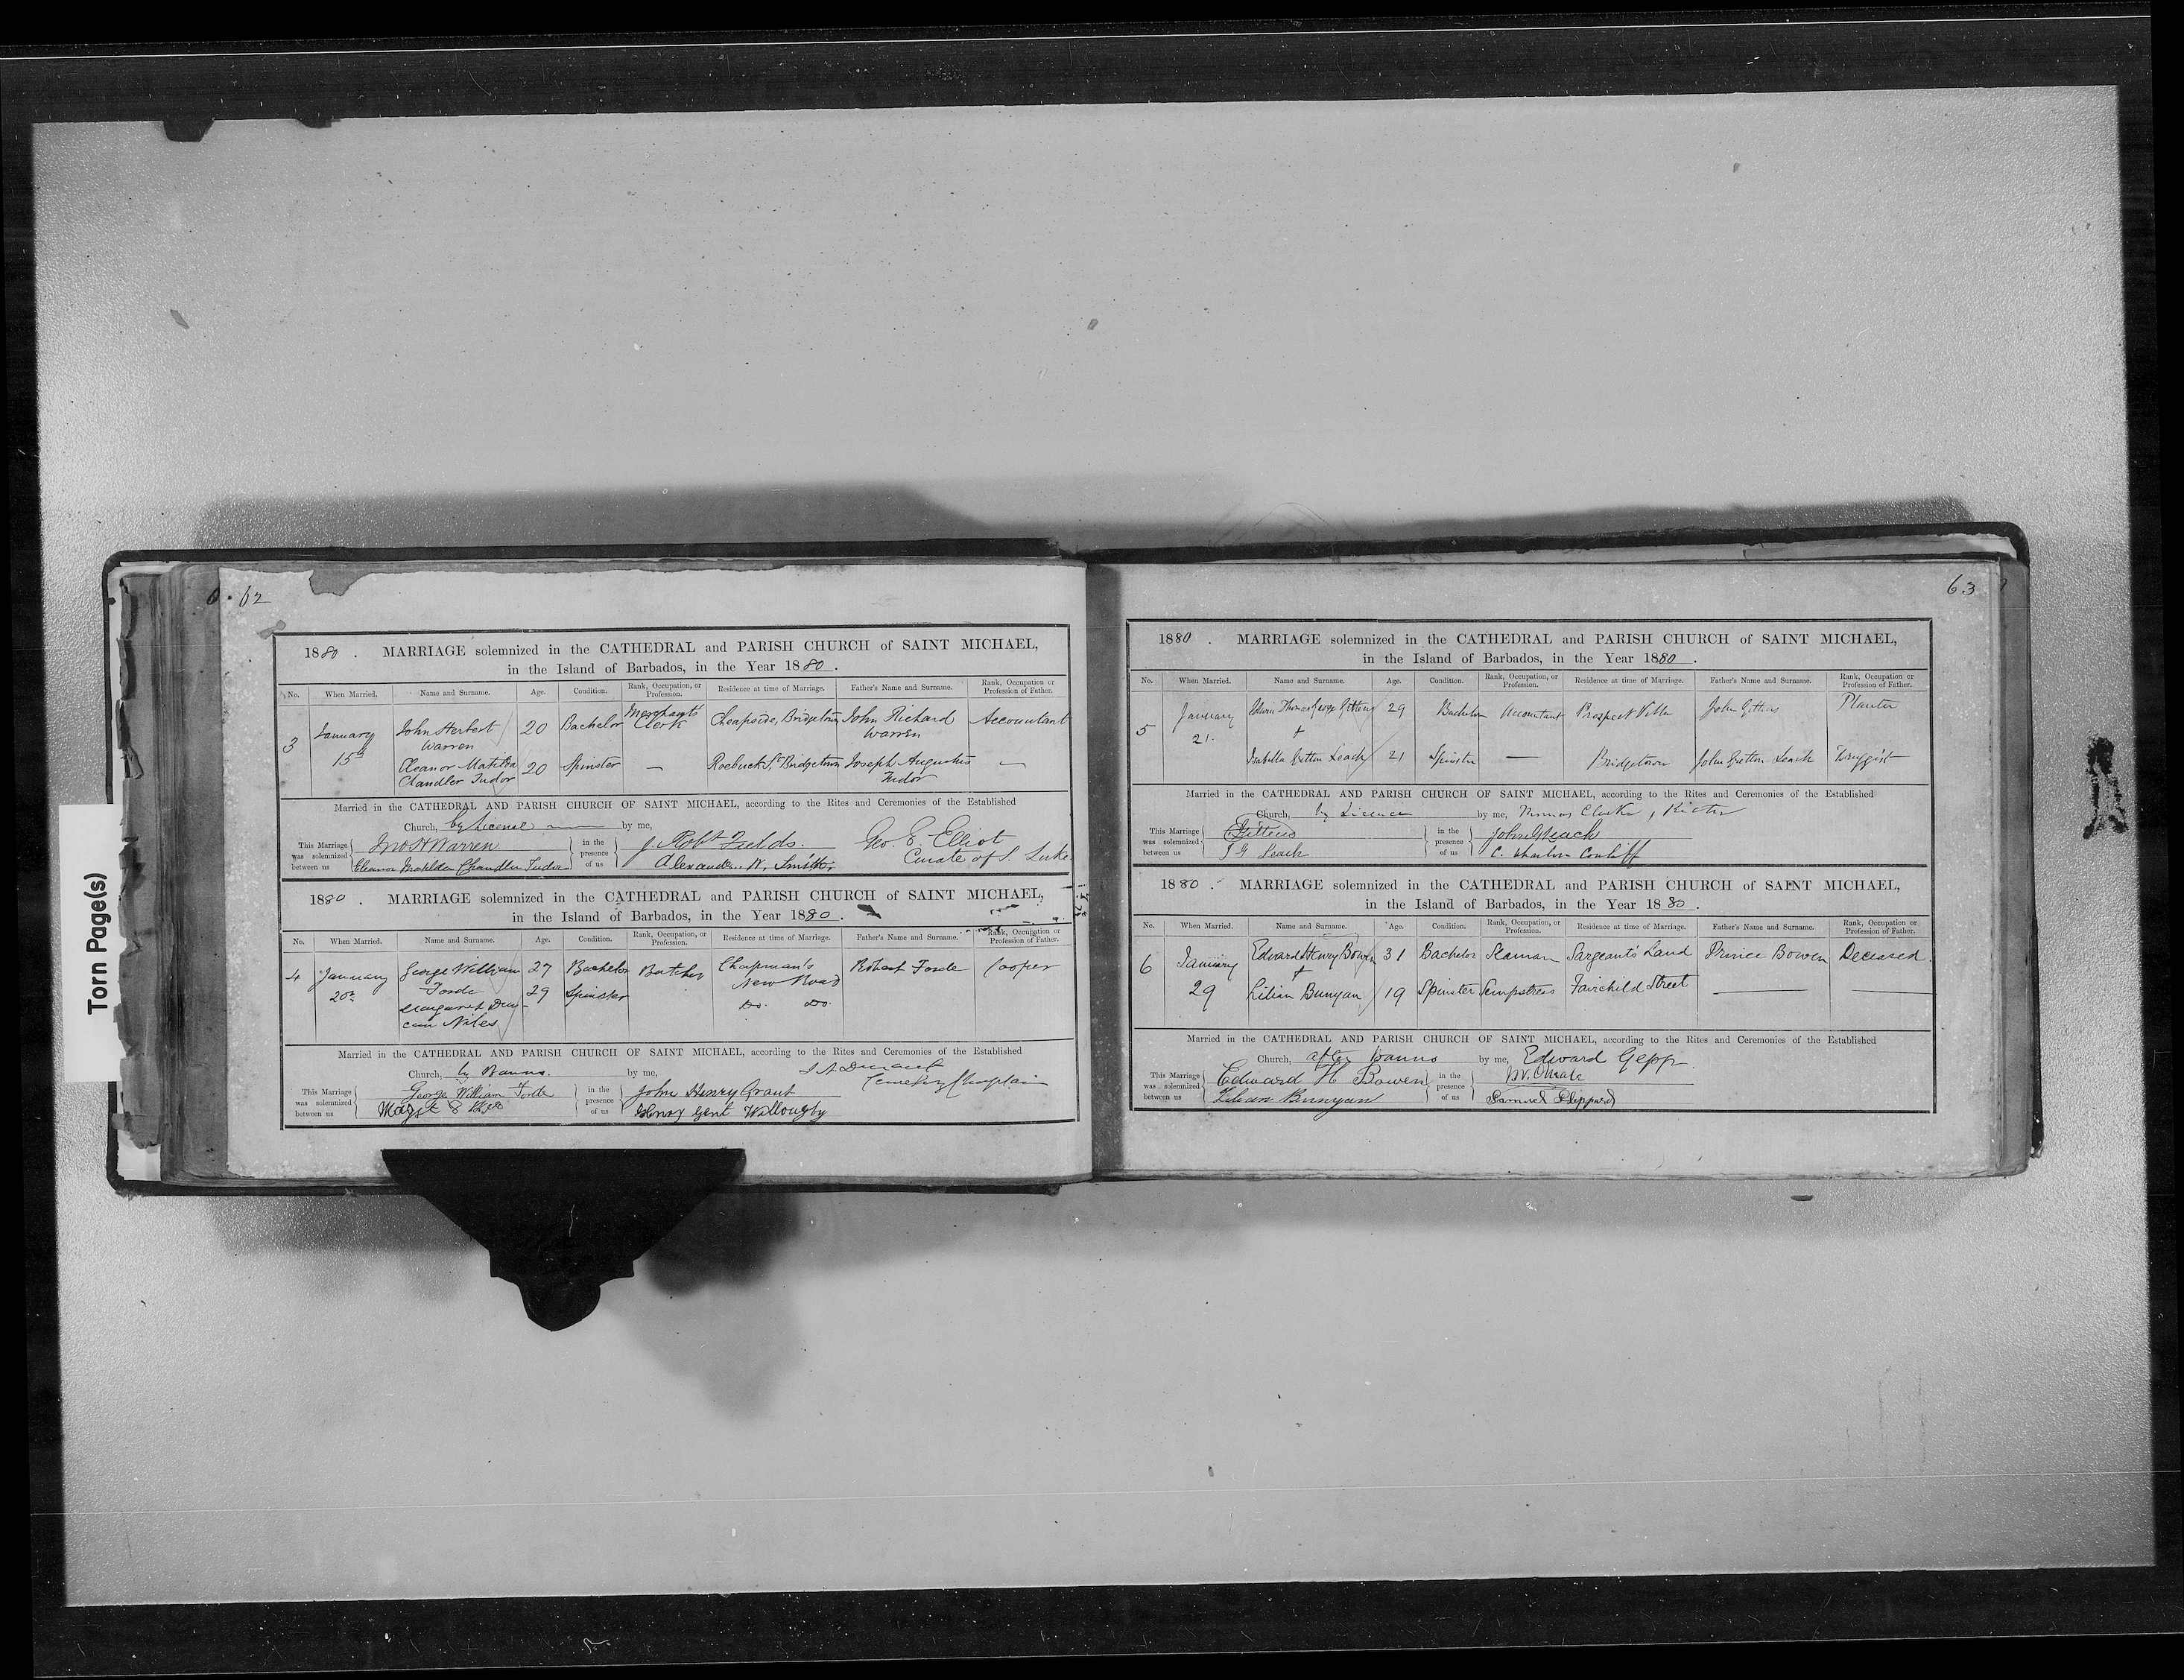 Torn Page(s)
62
1880. MARRIAGE solemnized in the CATHEDRAL and PARISH CHURCH of SAINT MICHAEL,
in the Island of Barbados, in the Year 1880.
No. When Married. Name and Surname. Age. Condition. Rank, Occupation, or Profession. Residence at time of Marriage. Father's Name and Surname. Rank, Occupation or Profession of Father.
3 January 15th John Herbert Warren 20 Bachelor Merchant's Clerk Cheapside, Bridgetown John Richard Warren Accountant
Eleanor Matilda Chandler Tudor 20 Spinster — Roebuck St Bridgetown Joseph Augustus Tudor —
Married in the CATHEDRAL AND PARISH CHURCH OF SAINT MICHAEL, according to the Rites and Ceremonies of the Established
Church, by License by me, Geo. E. Elliot
Curate of S. Luke
This Marriage was solemnized between us Jno H Warren
Eleanor Matilda Chandler Tudor
in the presence of us J Robt Fields.
Alexander W. Smith,
1880. MARRIAGE solemnized in the CATHEDRAL and PARISH CHURCH of SAINT MICHAEL,
in the Island of Barbados, in the Year 1880.
No. When Married. Name and Surname. Age. Condition. Rank, Occupation, or Profession. Residence at time of Marriage. Father's Name and Surname. Rank, Occupation or Profession of Father.
4 January 20th George William Forde 27 Bachelor Butcher Chapman's New Road Robert Forde Cooper
Margaret Duncan Niles 29 Spinster Do. Do.
Married in the CATHEDRAL AND PARISH CHURCH OF SAINT MICHAEL, according to the Rites and Ceremonies of the Established
Church, by Banns. by me, Durant
Cemetery Chaplain
This Marriage was solemnized between us George William Forde
in the presence of us John Henry Grant
Henry Gent Willougby
63
1880. MARRIAGE solemnized in the CATHEDRAL and PARISH CHURCH of SAINT MICHAEL,
in the Island of Barbados, in the Year 1880.
No. When Married. Name and Surname. Age. Condition. Rank, Occupation, or Profession. Residence at time of Marriage. Father's Name and Surname. Rank, Occupation or Profession of Father.
5 January 21. Thomas George Gittens 29 Bachelor Accountant Prospect Villa John Gittens Planter
+
Isabella Gretton Leach 21 Spinster — Bridgetown John Gretton Leach Druggist
Married in the CATHEDRAL AND PARISH CHURCH OF SAINT MICHAEL, according to the Rites and Ceremonies of the Established
Church, by Licence by me, Thomas Clarke, Rector
This Marriage was solemnized between us Gittens
I G Leach
in the presence of us John G Leach
1880. MARRIAGE solemnized in the CATHEDRAL and PARISH CHURCH of SAINT MICHAEL,
in the Island of Barbados, in the Year 1880.
No. When Married. Name and Surname. Age. Condition. Rank, Occupation, or Profession. Residence at time of Marriage. Father's Name and Surname. Rank, Occupation or Profession of Father.
6 January 29 Edward Henry Bowen 31 Bachelor Seaman Sargeant's Land Prince Bowen Deceased.
+
Lilian Bunyan 19 Spinster Sempstress Fairchild Street — —
Married in the CATHEDRAL AND PARISH CHURCH OF SAINT MICHAEL, according to the Rites and Ceremonies of the Established
Church, after banns by me, Edward Gepp.
This Marriage was solemnized between us Edward H Bowen
Lilian Bunyan
in the presence of us
Samuel Sheppard